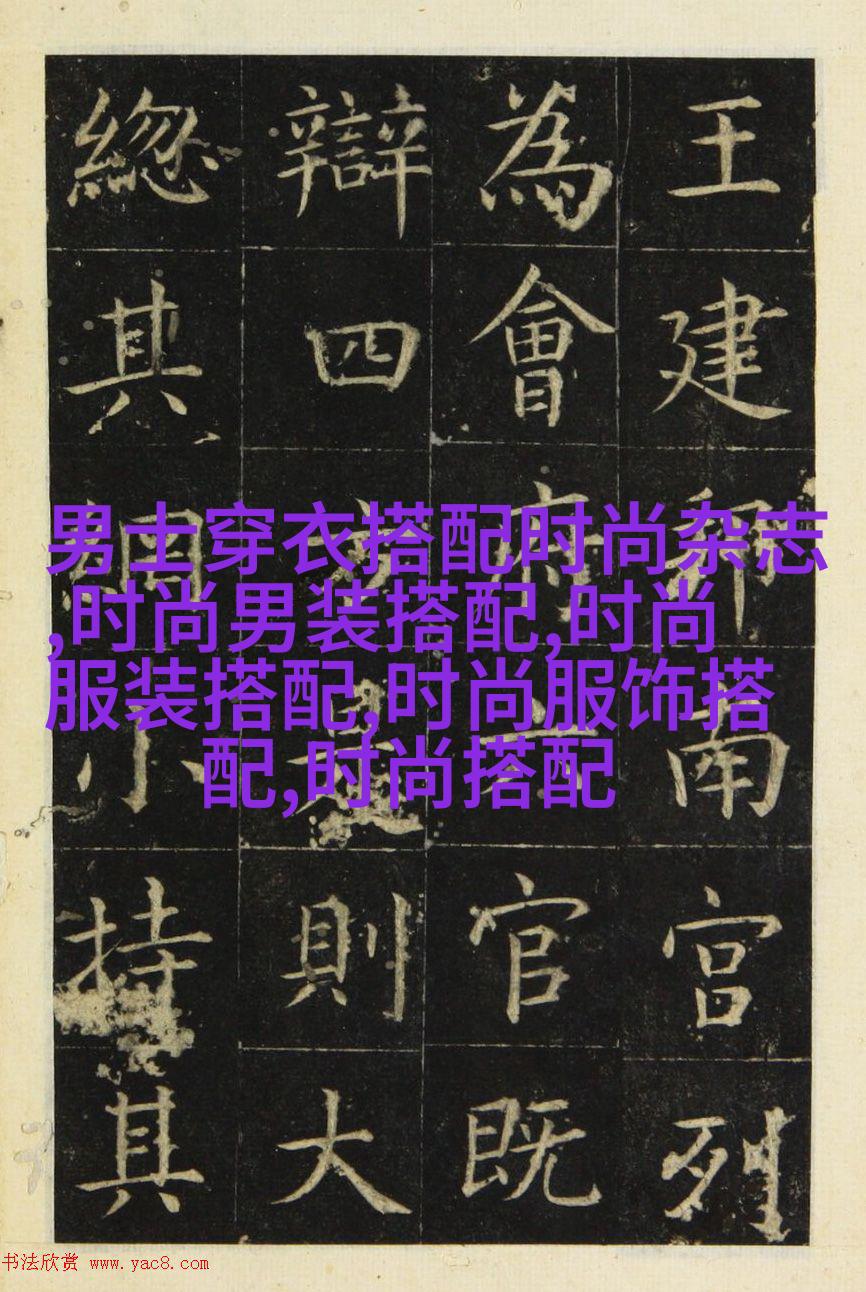 王建邦南宮列
為會府六官既
辯四方是則大
總其綱小持其
男士穿衣搭配时尚杂志
,时尚男装搭配,时尚
服装搭配,时尚服饰搭
配,时尚搭配
书法欣赏 www.yac8.com